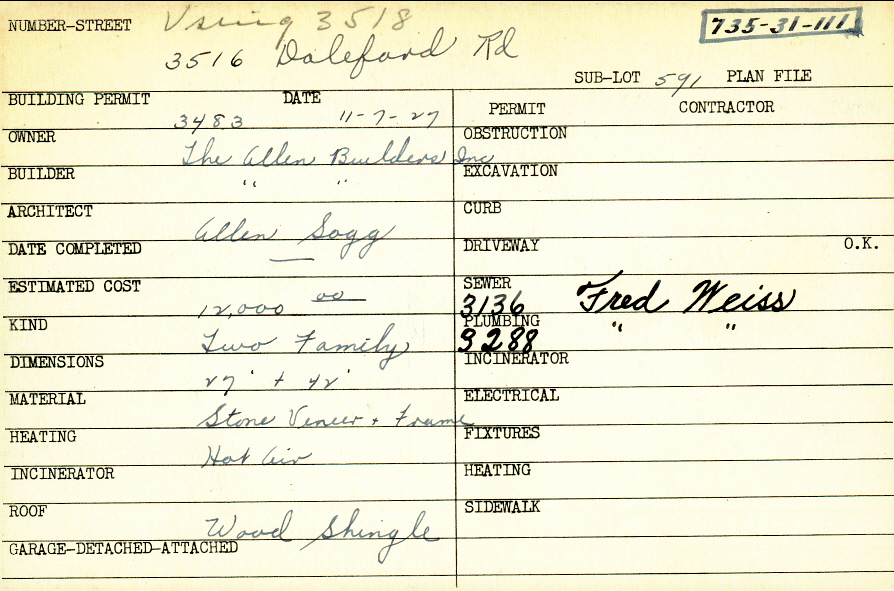 NUMBER-STREET Using 3518 735-31-111
3516 Daleford Rd
SUB-LOT 591 PLAN FILE
BUILDING PERMIT DATE PERMIT CONTRACTOR
3483 11-7-27
OWNER The Allen Builders Inc OBSTRUCTION
BUILDER " " EXCAVATION
ARCHITECT Allen Sogg CURB
DATE COMPLETED — DRIVEWAY O.K.
ESTIMATED COST 12,000 00 SEWER 3136 Fred Weiss
KIND Two Family PLUMBING 3288 " "
DIMENSIONS 27' + 42' INCINERATOR
MATERIAL Stone Veneer + Frame ELECTRICAL
HEATING Hot Air FIXTURES
INCINERATOR HEATING
ROOF Wood Shingle SIDEWALK
GARAGE-DETACHED-ATTACHED